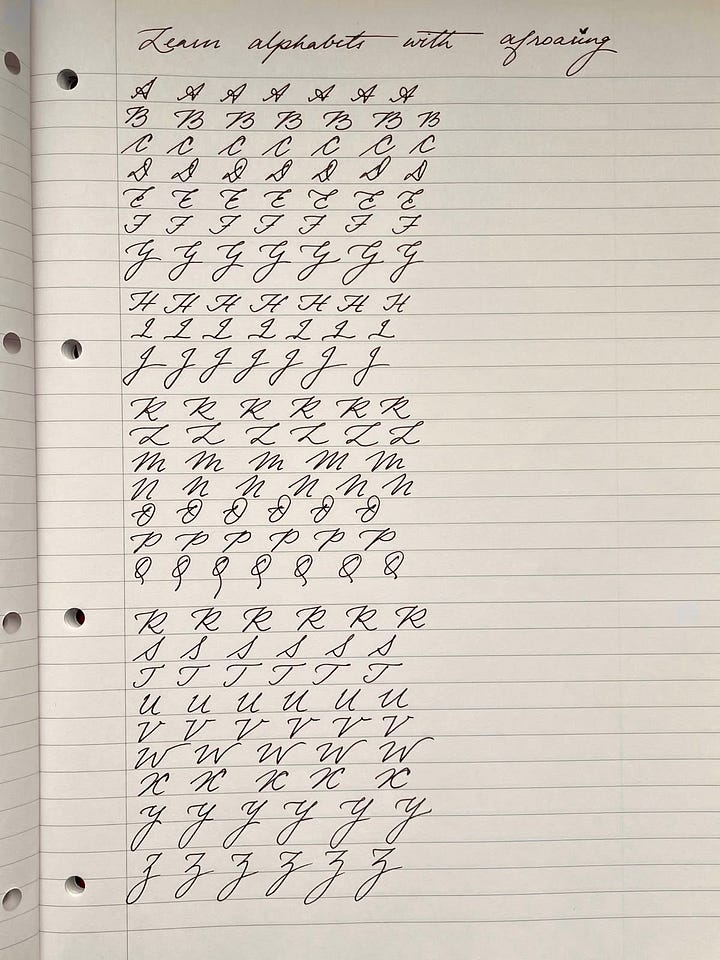 Learn alphabets with
A A A A A A A
B B B B B B B
C C C C C C C
D D D D D D D
E E E E E E E
F F F F F F F
G G G G G G G
H H H H H H H
I I I I I I I
J J J J J J J
K K K K K K
L L L L L L
M M M M M
N N N N N N
O O O O O O
P P P P P P
Q Q Q Q Q Q Q
R R R R R R
S S S S S S
T T T T T T
U U U U U U
V V V V V V
W W W W W
X X X X X
Y Y Y Y Y Y
Z Z Z Z Z Z